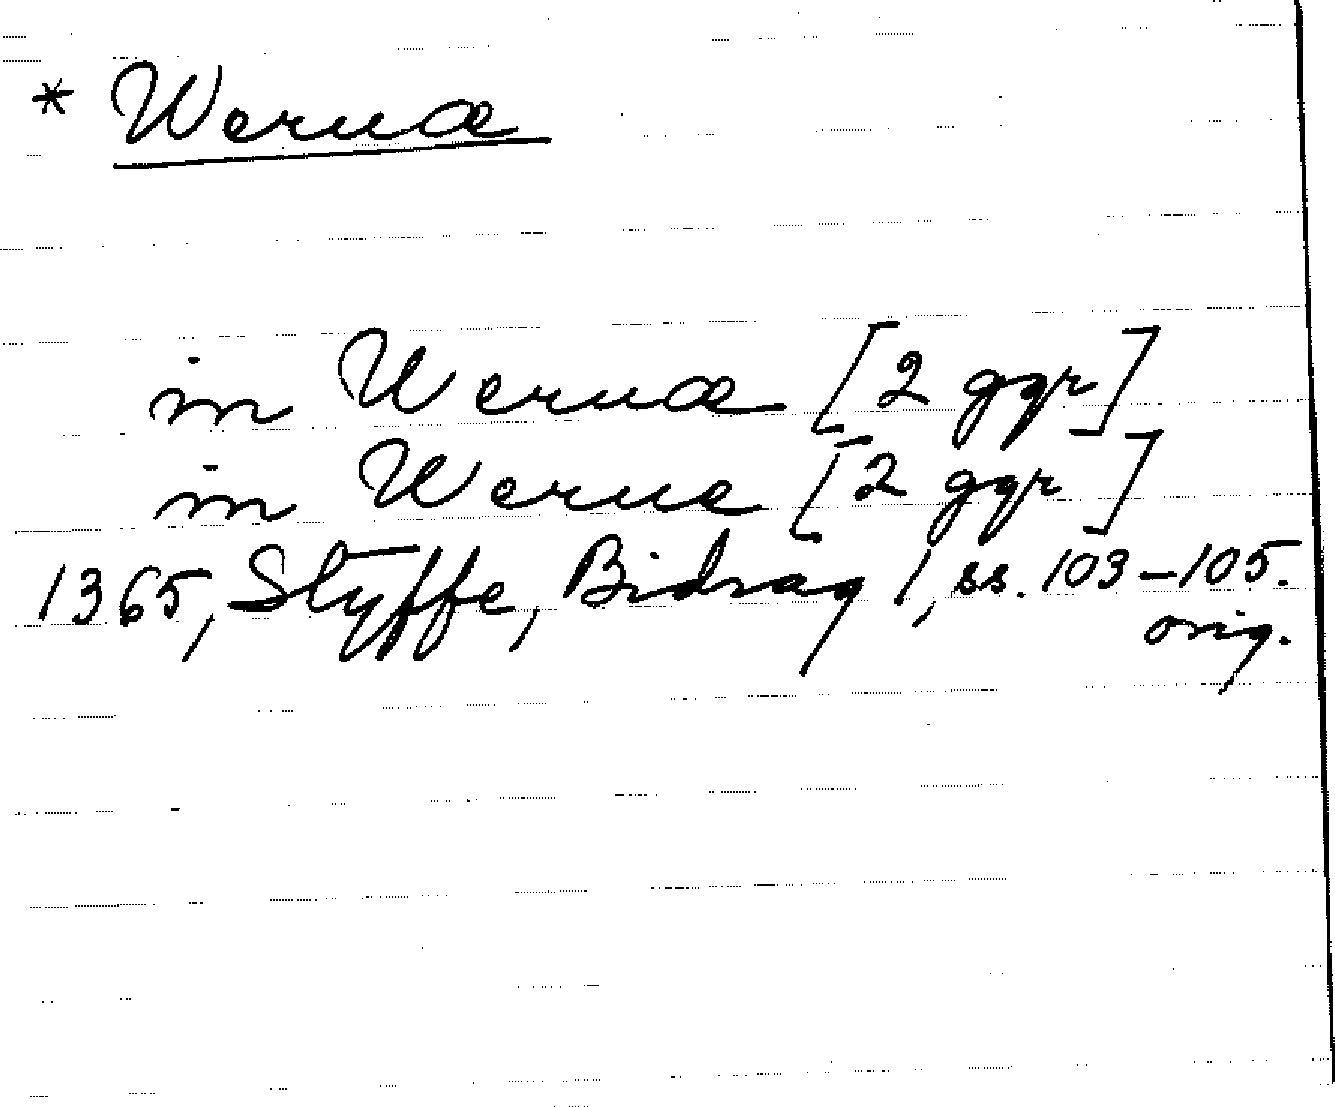 * Wernæ
in Wernæ [2 ggr]
in Werne [2 ggr]
1365, Styffe, Bidrag 1, ss. 103–105.
orig.